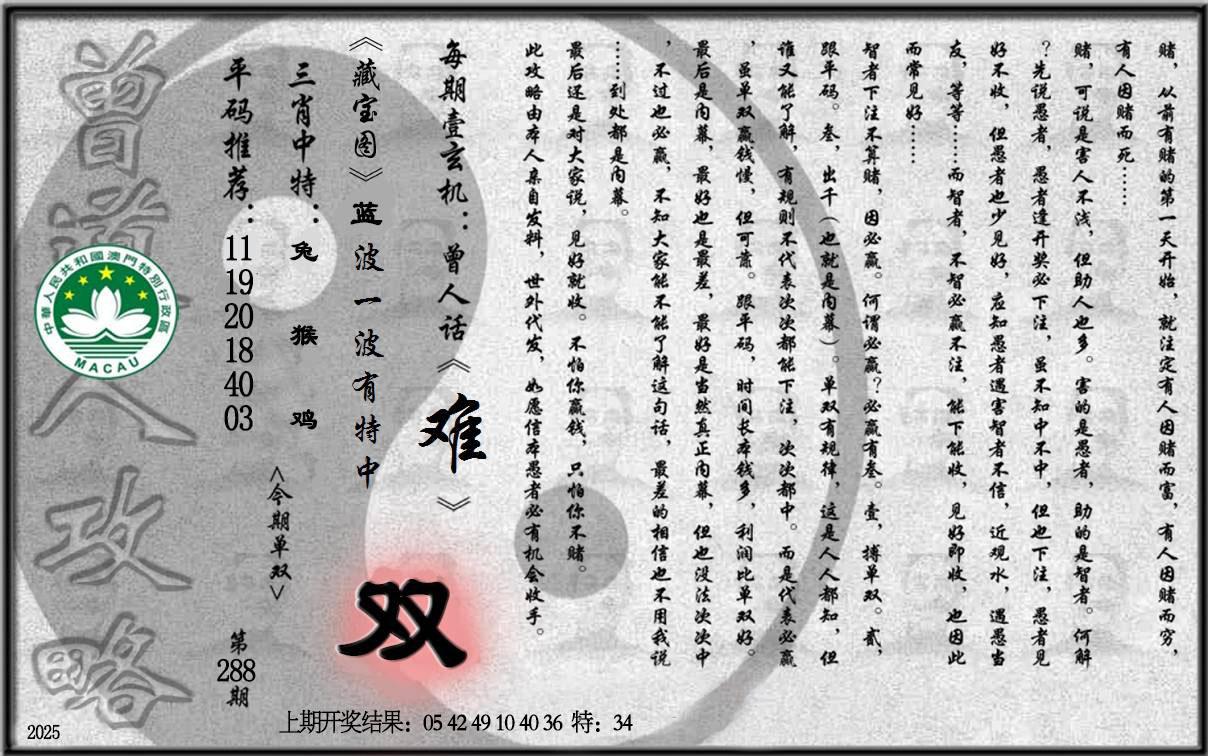 赌，从前有赌的第一天开始，就注定有人因赌而富，有人因赌而穷，
有人因赌而死……
赌，可说是害人不浅，但助人也多。害的是愚者，助的是智者。何解
？先说愚者，愚者逢开奖必下注，虽不知中不中，但也下注，愚者见
好不收，但愚者也少见好，应知愚者遇害智者不信，近观水，遇愚当
友，等等……而智者，不智必赢不注，能下能收，见好即收，也因此
而常见好……
智者下注不算赌，因必赢。何谓必赢？必赢有叁。壹，搏单双。贰，
跟平码。叁，出千（也就是内幕）。单双有规律，这是人人都知，但
谁又能了解，有规则不代表次次都能下注，次次都中。而是代表必赢
，虽单双赢钱慢，但可靠。跟平码，时间长本钱多，利润比单双好。
最后是内幕，最好也是最差，最好是当然真正内幕，但也没法次次中
，不过也必赢，不知大家能不能了解这句话，最差的相信也不用我说
……到处都是内幕。
最后还是对大家说，见好就收。不怕你赢钱，只怕你不赌。
此攻略由本人亲自发料，世外代发，如愿信本愚者必有机会收手。
每期壹玄机：曾人话《难》
《藏宝图》蓝波一波有特中
双
三肖中特：兔 猴 鸡
<今期单双>
平码推荐：11 19 20 18 40 03
第288期
曾道人攻略
中華人民共和國澳門特別行政區
MACAU
上期开奖结果：05 42 49 10 40 36 特：34
2025